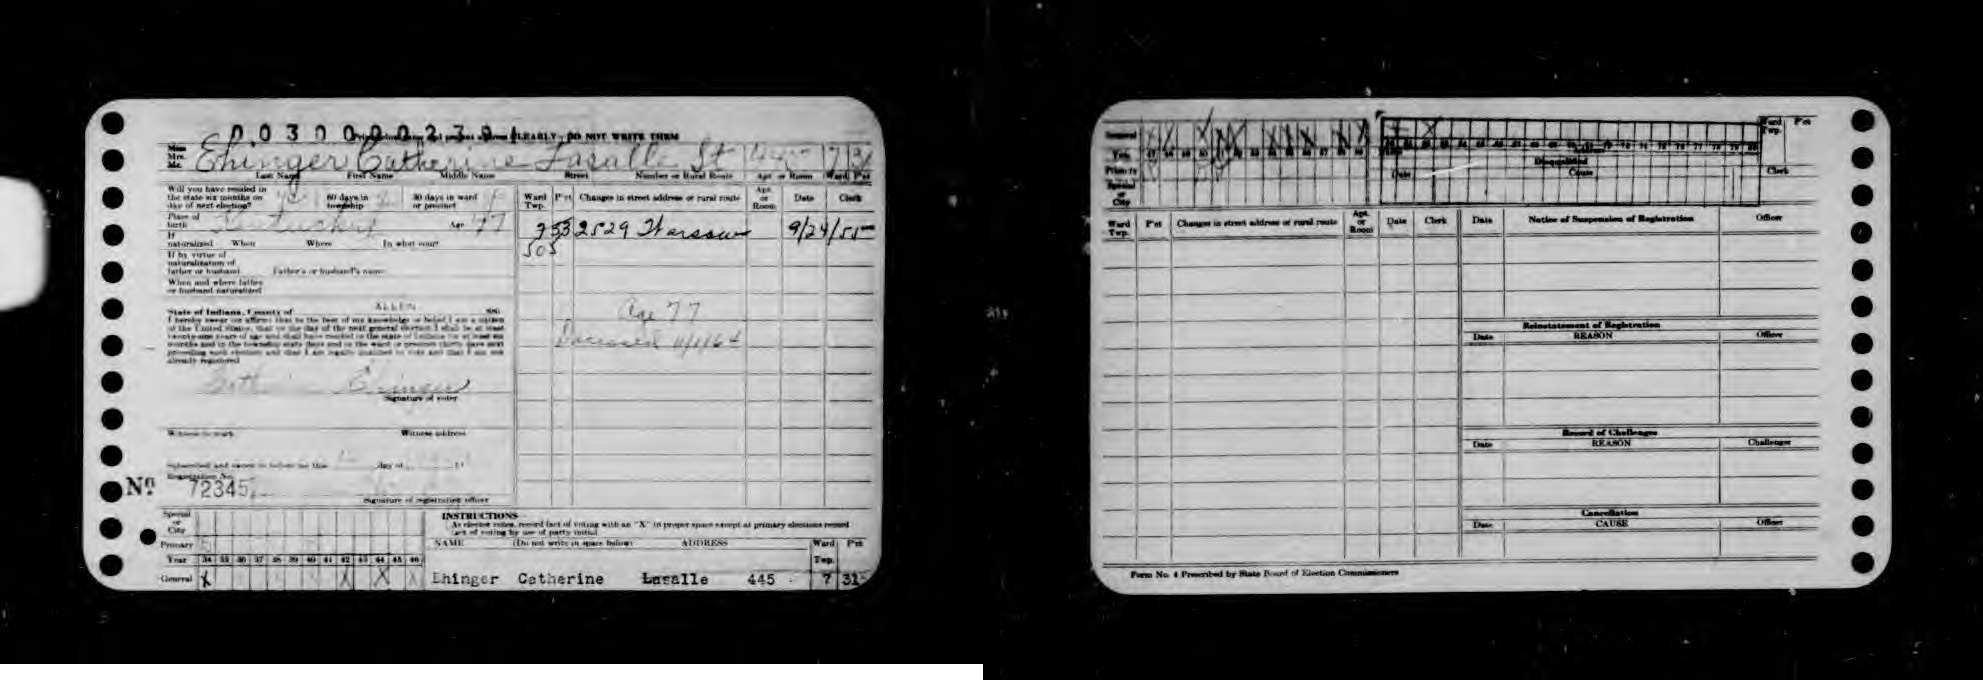 0030000
CLEARLY - DO NOT WRITE THEM
Miss
Mrs.
Mr.
Ehinger Catherine Lasalle St 445 7 31
Last Name First Name Middle Name Street Number or Rural Route Apt. or Room Ward P'ct
Will you have resided in
the state six months on
day of next election?
60 days in
township
30 days in ward
or precinct
Place of
birth Kentucky Age 47
If
naturalized When Where In what court
If by virtue of
naturalization of
father or husband Father's or husband's name
When and where father
or husband naturalized
State of Indiana, County of ALLEN
I hereby swear (or affirm) that to the best of my knowledge or belief I am a citizen
of the United States, that on the day of the next general election I shall be at least
twenty-one years of age and shall have resided in the state of Indiana for at least six
months and in the township sixty days and in the ward or precinct thirty days next
preceding such election and that I am legally qualified to vote and that I am not
already registered
Ehinger
Signature of voter
Witness to mark Witness address
Subscribed and sworn to before me this day of
Registration No.
No. 72345
Signature of registration officer
Ward
Twp. P'ct Changes in street address or rural route Apt.
or
Room Date Clerk
953 2529 Warsaw 9/24/55
505
Age 77
Deceased 11/1/64
Special
or
City
Primary
Year 34 35 36 37 38 39 40 41 42 43 44 45 46
General X X X
INSTRUCTIONS
As elector votes, record fact of voting with an "X" in proper space except at primary elections record
fact of voting by use of party initial
NAME (Do not write in space below) ADDRESS Ward
Twp. P'ct
Ehinger Catherine Lasalle 445 7 31
General
Year 47 48 49 50 52 53 54 55 56 57 58 59
Primary
Special
or
City
Ward
Twp. P'ct
Disqualified
Date Cause Clerk
Ward
Twp. P'ct Changes in street address or rural route Apt.
or
Room Date Clerk
Date Notice of Suspension of Registration Officer
Reinstatement of Registration
Date REASON Officer
Record of Challenges
Date REASON Challenger
Cancellation
Date CAUSE Officer
Form No. 4 Prescribed by State Board of Election Commissioners